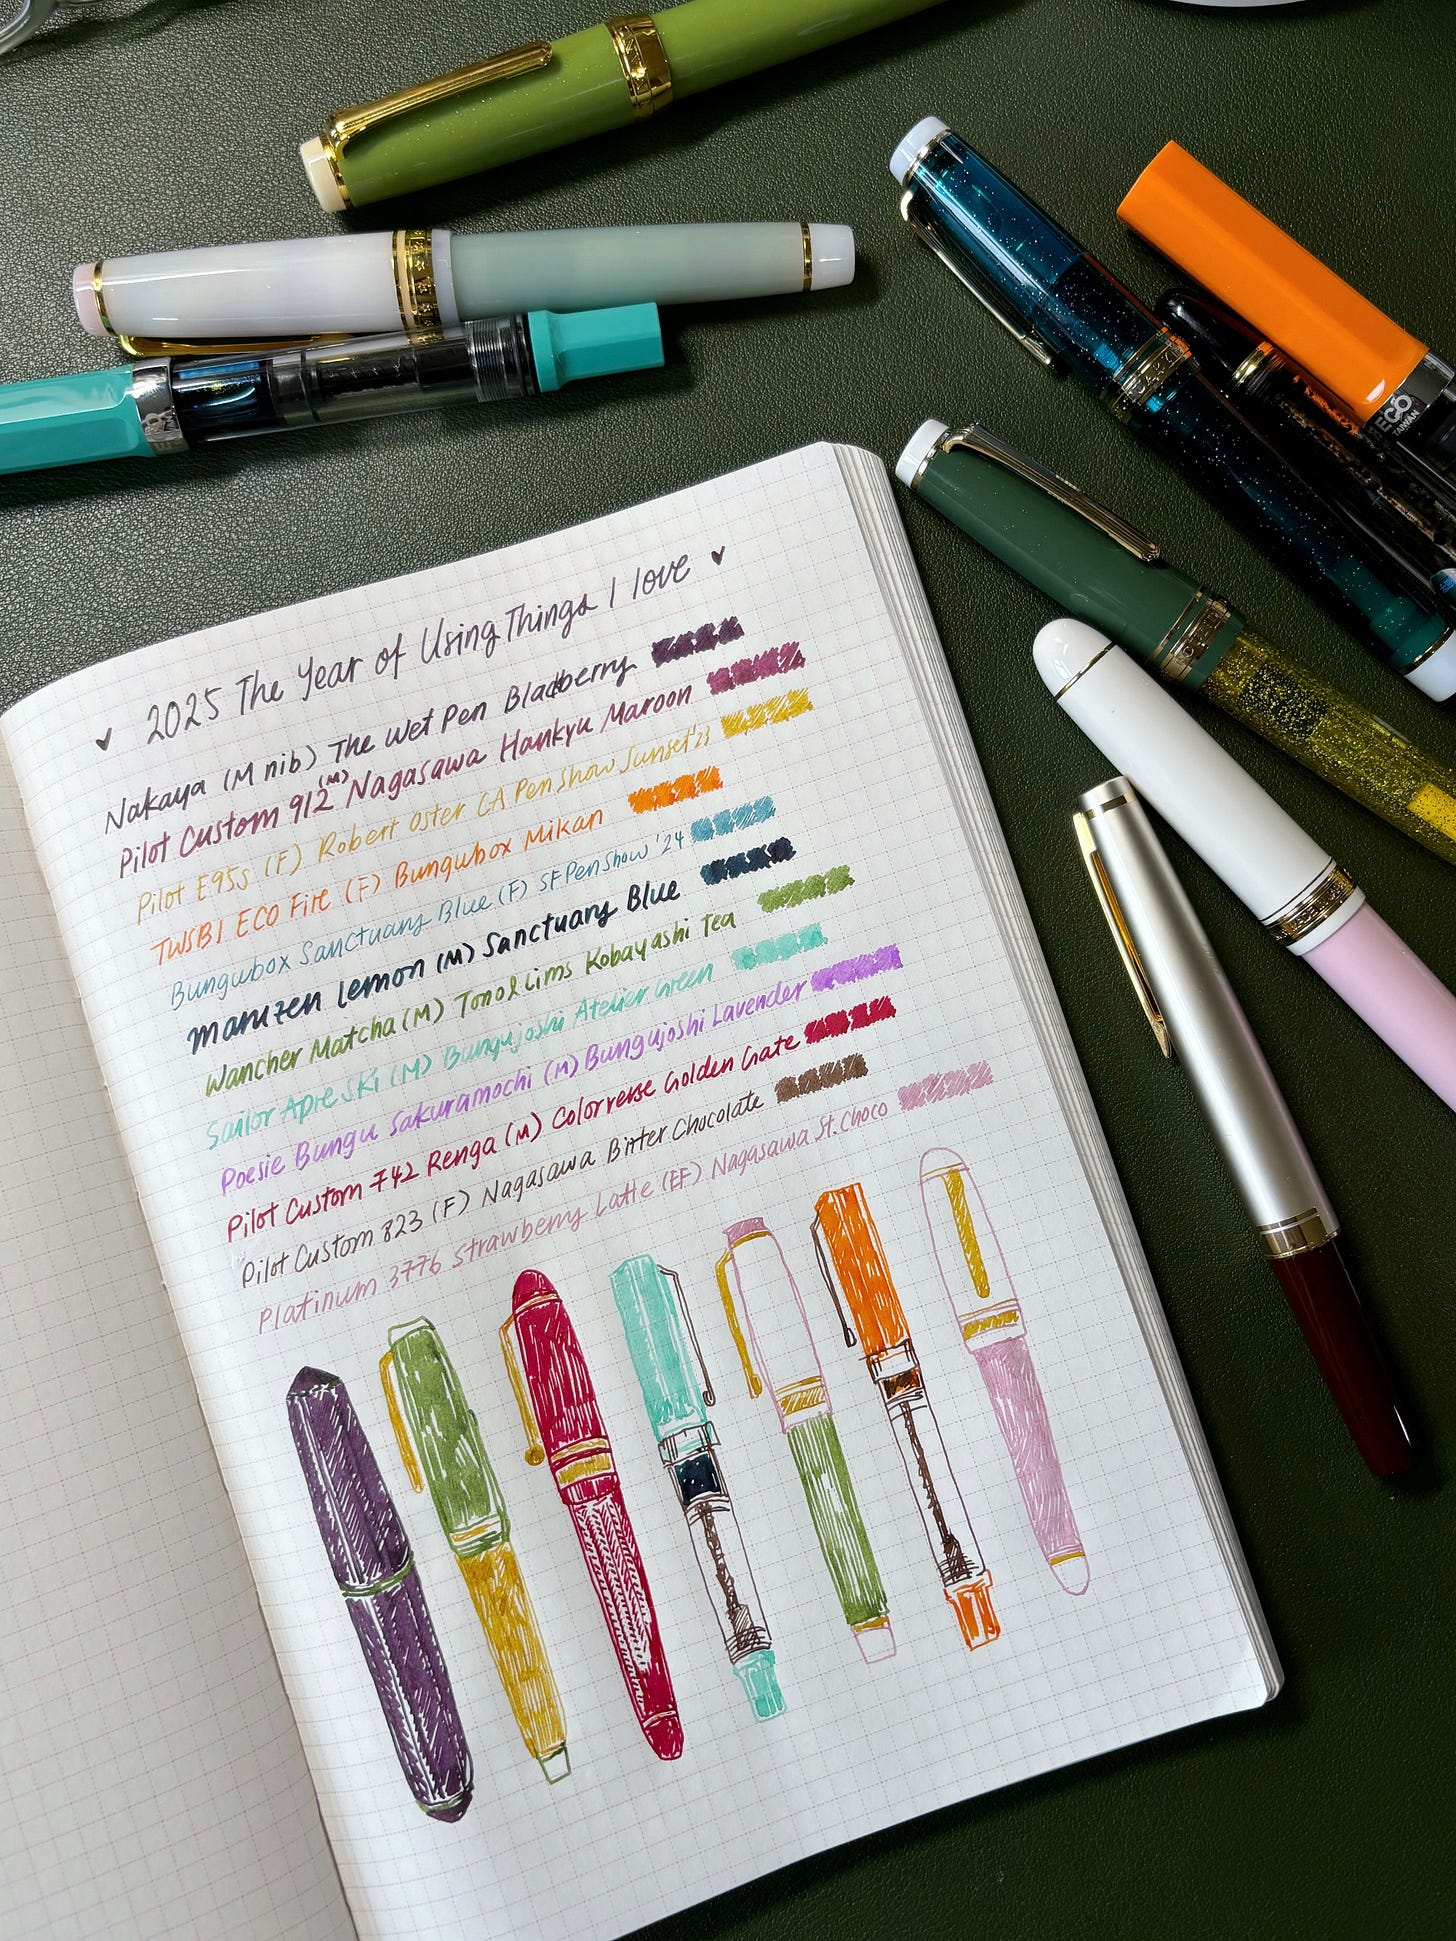 2025 The Year of Using Things I love
Nakaya (M nib) The Wet Pen Bladberry
Pilot Custom 912 (M) Nagasawa Hankyu Maroon
Pilot E95s (F) Robert Oster CA Pen Show Sunset '23
TWSBI ECO Fire (F) Bungubox Mikan
Bungubox Sanctuary Blue (F) SF Pen Show '24
maruzen Lemon (M) Sanctuary Blue
Wancher Matcha (M) Tono & Lims Kobayashi Tea
Sailor Apre Ski (M) Bungujoshi Atelier Green
Poesie Bungu Sakuramochi (M) Bungujoshi Lavender
Pilot Custom 742 Renga (M) Colorverse Golden Gate
Pilot Custom 823 (F) Nagasawa Bitter Chocolate
Platinum 3776 Strawberry Latte (EF) Nagasawa St. Choco
TAIWAN